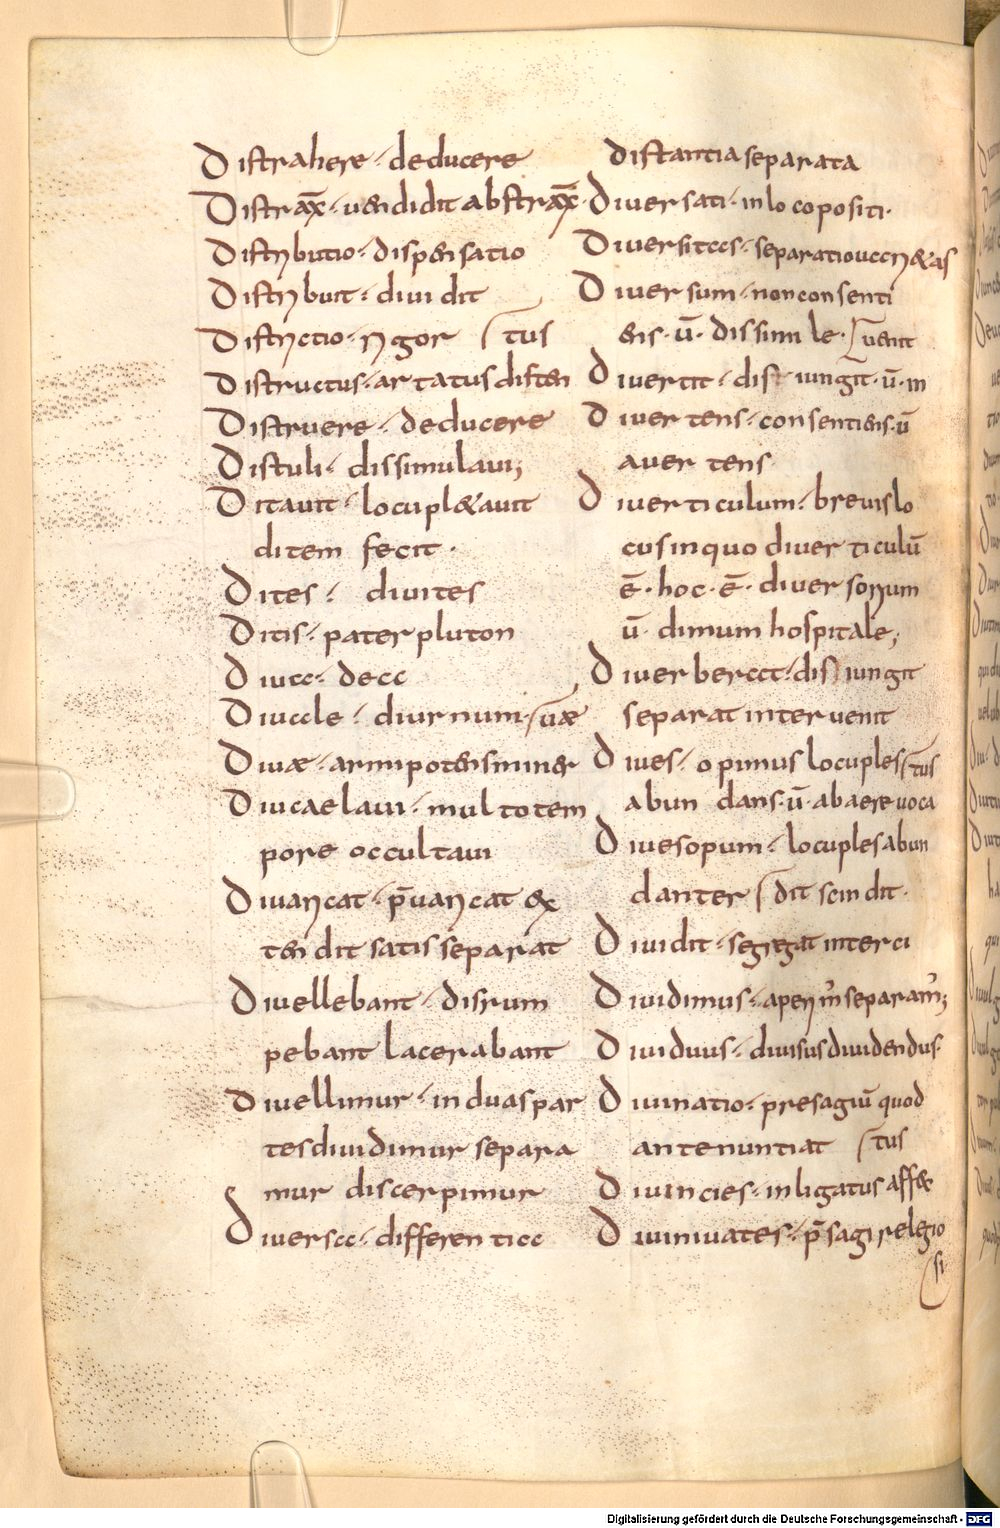 Distrahere · deducere
Distrax̄ · uendidit abstrax̄ ·
Distributio · dispensatio
Distribuit · diuidit
Districtio · rigor
Distructus · artatus disten tus
Distruere · deducere
Distuli · dissimulaui;
Ditauit · locupletauit
ditem fecit ·
Dites · diuites
Ditis · pater pluton
Diua · dea
Diuale · diurnum ·
Diuae · armipotens miner uae
Diu caelaui · multo tem
pore occultaui
Diuaricat · p̄uaricat ex
tendit satis separat
Diuellebant · disrum
pebant lacerabant
Diuellimur · in duas par
tes diuidimur separa
mur discerpimur
Diuersa · differentia
distantia separata
Diuersati · in loco positi ·
Diuersitas · separatio uarietas
Diuersum · non consenti
ens · ū · dissimile ·
Diuertit · disiungit · ū · in uenit
Diuertens · consentiens · ū
auertens
Diuerticulum · breuis lo
cus in quo diuerticulū
ē · hoc · ē · diuersorium
ū · dimum hospitale;
Diuerberat · disiungit
separat interuenit
Diues · opimus locuples
abundans · ū · ab aere uoca tus
Diues opum · locuples abun
danter
Diuidit · segregat interci dit scindit ·
Diuidimus · aperim̄ separam̄;
Diuiduus · diuisus diuidendus ·
Diuinatio · presagiū quod
ante nuntiat
Diuincies · inligatus affec tus
Diuini uates · p̄sagi relegio
si
Digitalisierung gefördert durch die Deutsche Forschungsgemeinschaft - DFG